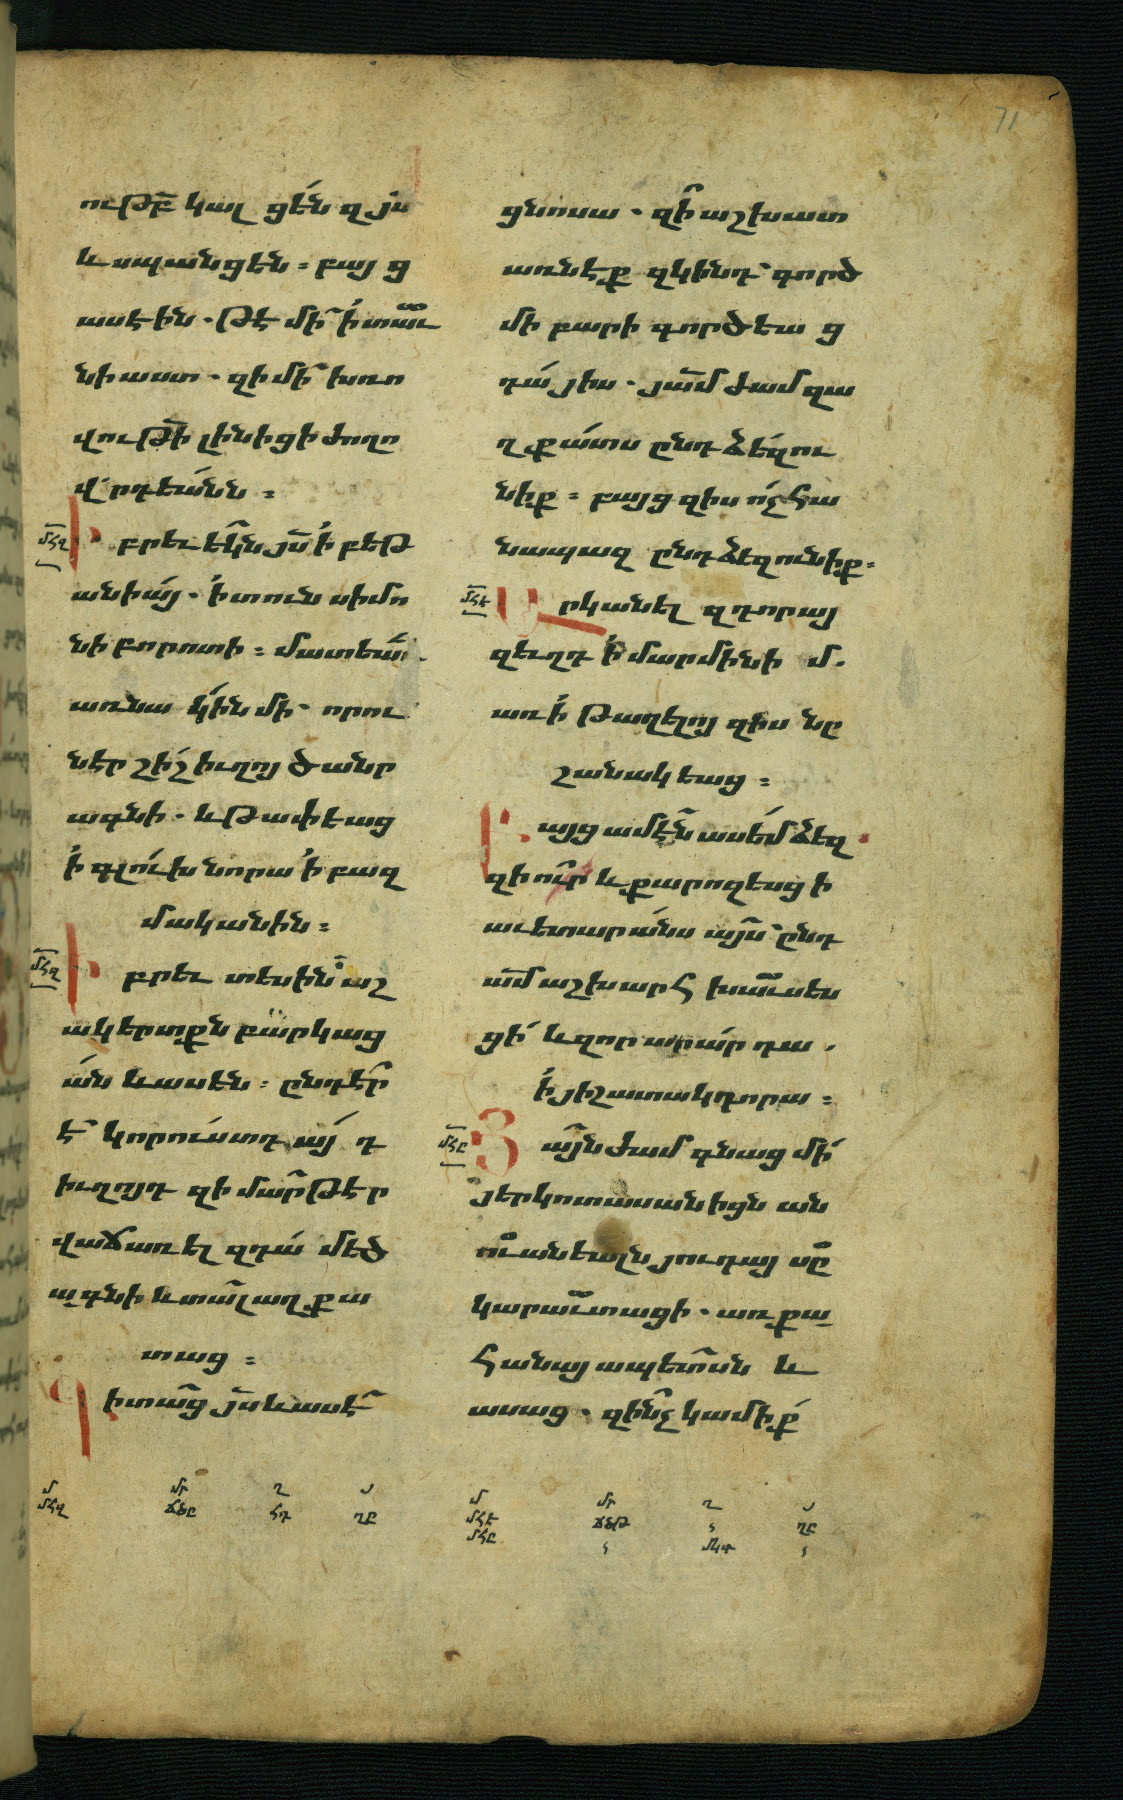 71
ութբ կալ ցեն զյս
և սպանցեն։ բայ ց
ասէին. թէ մի ի տաւ
նի աստ. զի մի խռո
վութի լինիցի ժողո
վրդեանն։
մՀզ Իբրև եկն յս ի բեթ
անիայ. ի տուն սիմո
նի բորոտի։ մատեաւ
առնա կին մի. որու
նէր շիշ իւղոյ ծանր
ագնի. և թափէաց
ի գլուխ նորա ի բազ
մականին։
մՀզ Իբրև տեսին աշ
ակերտքն բարկաց
ան և ասեն։ ընդէր
է կորուստդ այ դ
իւղոյդ զի մարթէր
վաճառել զդա մեծ
ագնի և տալ աղքա
տաց։
Գիտաց յս և ասէ
ցնոսա. զի աշխատ
առնէք զկինդ գործ
մի բարի գործեա ց
դա յիս. յամ ժամ զա
ղքատս ընդ ձեզ ու
նիք։ բայց զիս ոչ Հա
նապազ ընդ ձեզ ունիք։
մՀէ Արկանել զդորայ
զեւղդ ի մարմինի մ.
առ ի թաղելոյ զիս նը
շանակեաց։
Բայց ամէն ասեմ ձեզ
զի ուր և քարոզեսցի
աւետարանս այս ընդ
ամ աշխարՀ խաւսես
ցի և զոր արար դա.
ի յիշատակ դորա։
մՀը Յայնժամ գնաց մի
յերկոտասանիցն ան
ուանեալն յուդայ սը
կարաւտացի. առ քա
Հանայապետսն և
ասաց. զինչ կամիք
մ մր ղ յ
մՀզ ճծը Հդ ղբ
մ մր ղ յ
մՀէ ճծթ ՛ ղբ
մՀը ՛ մկտ ՛